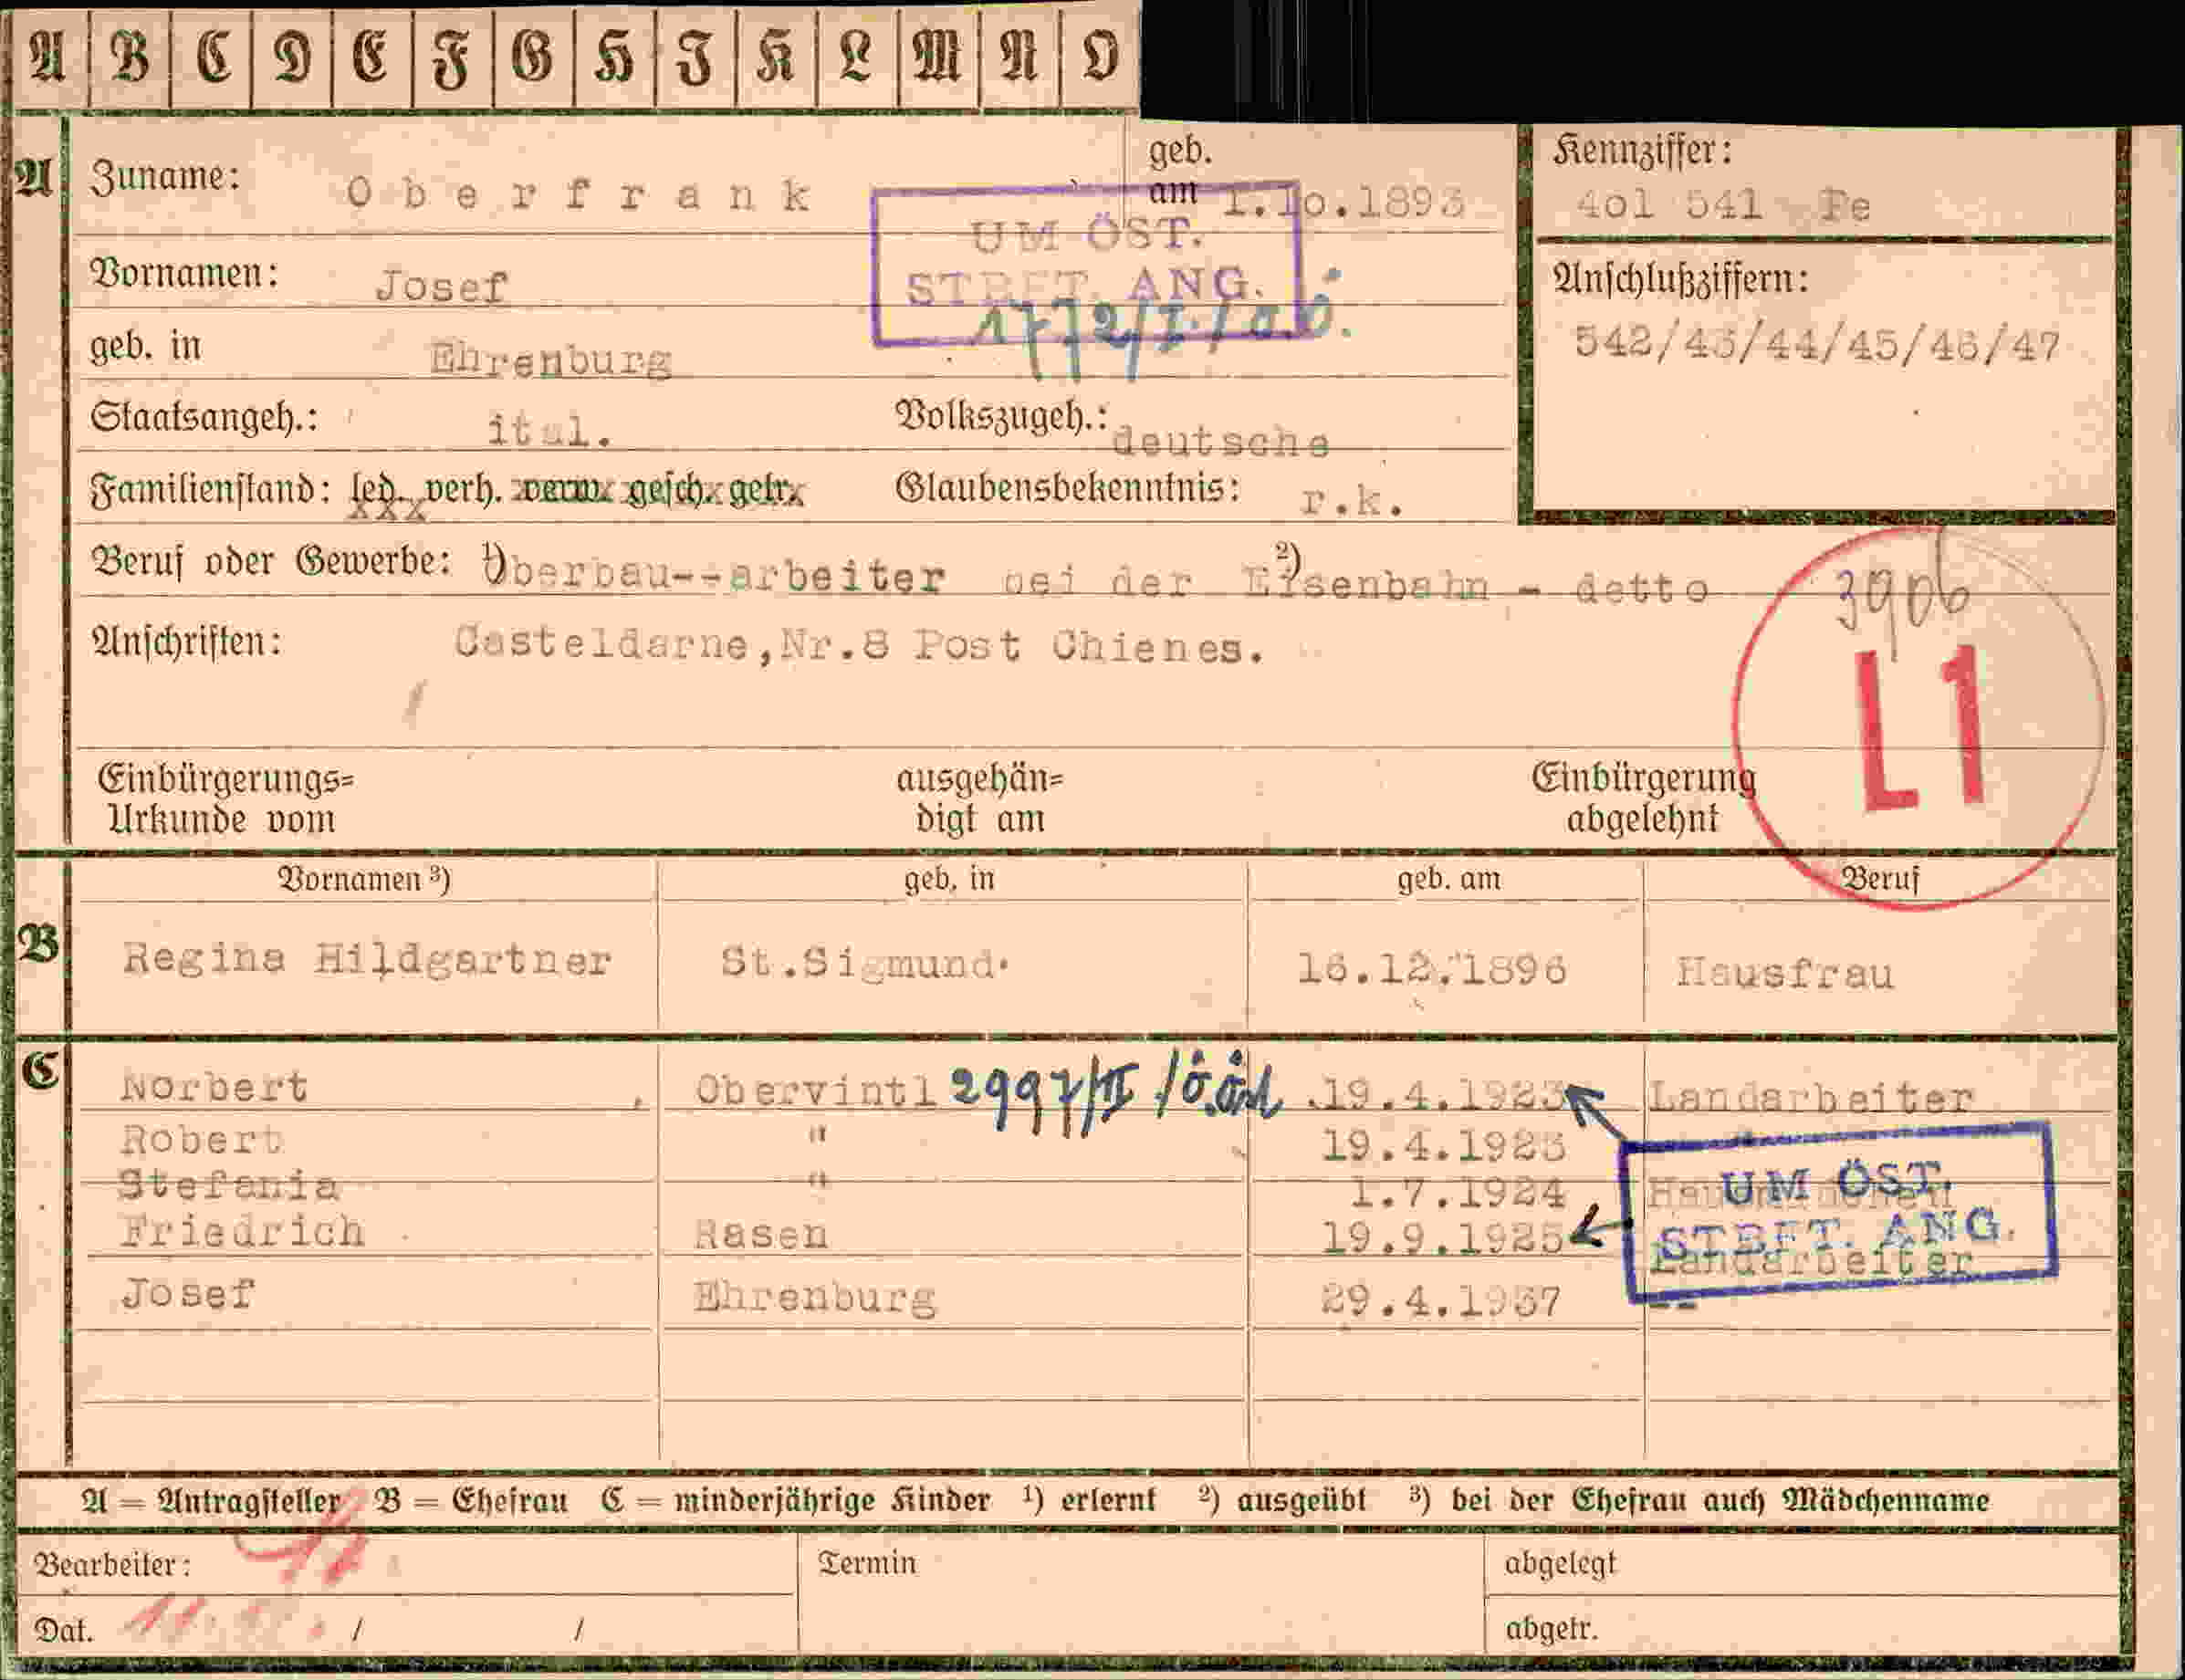 A B C D E F G H I K L M N O
A Zuname: Oberfrank geb. am 1.10.1893
Kennziffer: 401 541 Fe
UM ÖST. STBFT. ANG.
Vornamen: Josef
Anschlußziffern: 542/43/44/45/46/47
geb. in Ehrenburg
Staatsangeh.: ital. Volkszugeh.: deutsche
Familienstand: led. verh. verw. gesch. getr. Glaubensbekenntnis: r.k.
Beruf oder Gewerbe: 1) Oberbau--arbeiter bei der 2) Eisenbahn - detto
3906
Anschriften: Casteldarne,Nr.8 Post Chienes.
L1
Einbürgerungs= Urkunde vom ausgehän= digt am Einbürgerung abgelehnt
Vornamen 3) geb. in geb. am Beruf
B Regina Hildgartner St.Sigmund. 16.12.1896 Hausfrau
C Norbert Obervintl 2997/II 19.4.1923 Landarbeiter
Robert " 19.4.1923
Stefania " 1.7.1924
UM ÖST. STBFT. ANG.
Friedrich Rasen 19.9.1925 Landarbeiter
Josef Ehrenburg 29.4.1937 --
A = Antragsteller B = Ehefrau C = minderjährige Kinder 1) erlernt 2) ausgeübt 3) bei der Ehefrau auch Mädchenname
Bearbeiter: Termin abgelegt
Dat. / / abgetr.